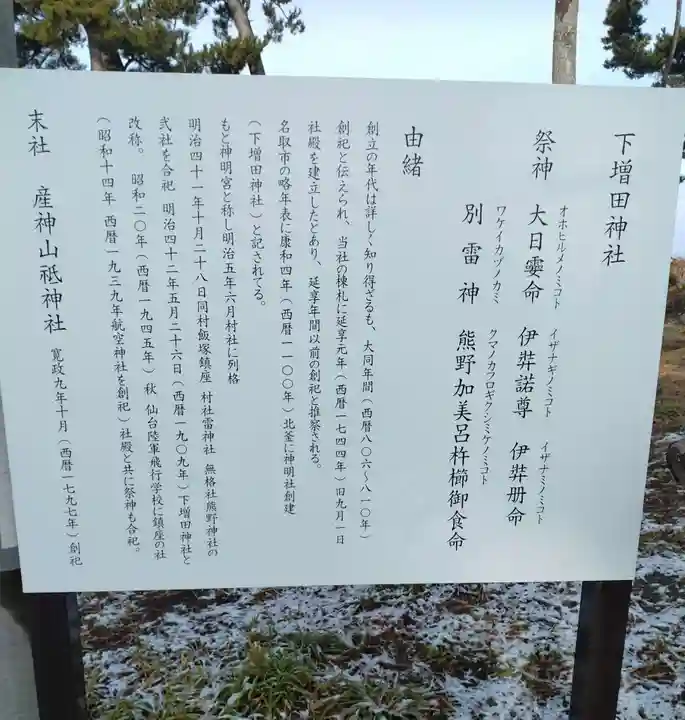 下増田神社
祭神 大日孁命 伊弉諾尊 伊弉册命
オホヒルメノミコト イザナギノミコト イザナミノミコト
別雷神 熊野加美呂杵櫛御食命
ワケイカヅノカミ クマノカブロギクシミケノミコト
由緒
創立の年代は詳しく知り得ざるも、大同年間(西暦八〇六〜八一〇年)
創祀と伝えられ、当社の棟札に延享元年(西暦一七四四年)旧九月一日
社殿を建立したとあり、延享年間以前の創祀と推察される。
名取市の略年表に康和四年(西暦一一〇〇年)北釜に神明社創建
(下増田神社)と記されてる。
もと神明宮と称し明治五年六月村社に列格
明治四十一年十月二十八日同村飯塚鎮座 村社雷神社 無格社熊野神社の
弐社を合祀 明治四十二年五月二十六日(西暦一九〇九年)下増田神社と
改称。 昭和二〇年(西暦一九四五年)秋 仙台陸軍飛行学校に鎮座の社
(昭和十四年 西暦一九三九年航空神社を創祀)社殿と共に祭神も合祀。
末社 産神山祗神社 寛政九年十月(西暦一七九七年)創祀